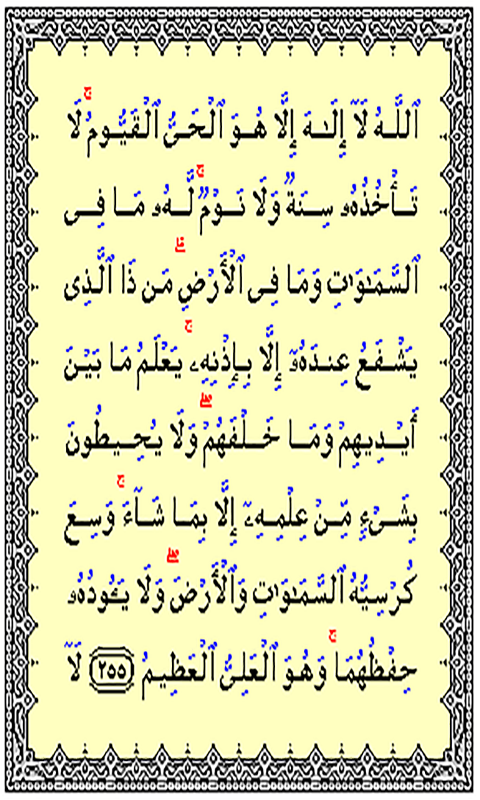 ٱللَّهُ لَآ إِلَٰهَ إِلَّا هُوَ ٱلْحَىُّ ٱلْقَيُّومُ ۚ لَا
تَأْخُذُهُۥ سِنَةٌ وَلَا نَوْمٌ ۚ لَّهُۥ مَا فِى
ٱلسَّمَٰوَٰتِ وَمَا فِى ٱلْأَرْضِ ۗ مَن ذَا ٱلَّذِى
يَشْفَعُ عِندَهُۥٓ إِلَّا بِإِذْنِهِۦ ۚ يَعْلَمُ مَا بَيْنَ
أَيْدِيهِمْ وَمَا خَلْفَهُمْ ۖ وَلَا يُحِيطُونَ
بِشَىْءٍ مِّنْ عِلْمِهِۦٓ إِلَّا بِمَا شَآءَ ۚ وَسِعَ
كُرْسِيُّهُ ٱلسَّمَٰوَٰتِ وَٱلْأَرْضَ ۖ وَلَا يَـُٔودُهُۥ
حِفْظُهُمَا ۚ وَهُوَ ٱلْعَلِىُّ ٱلْعَظِيمُ ٢٥٥ لَآ